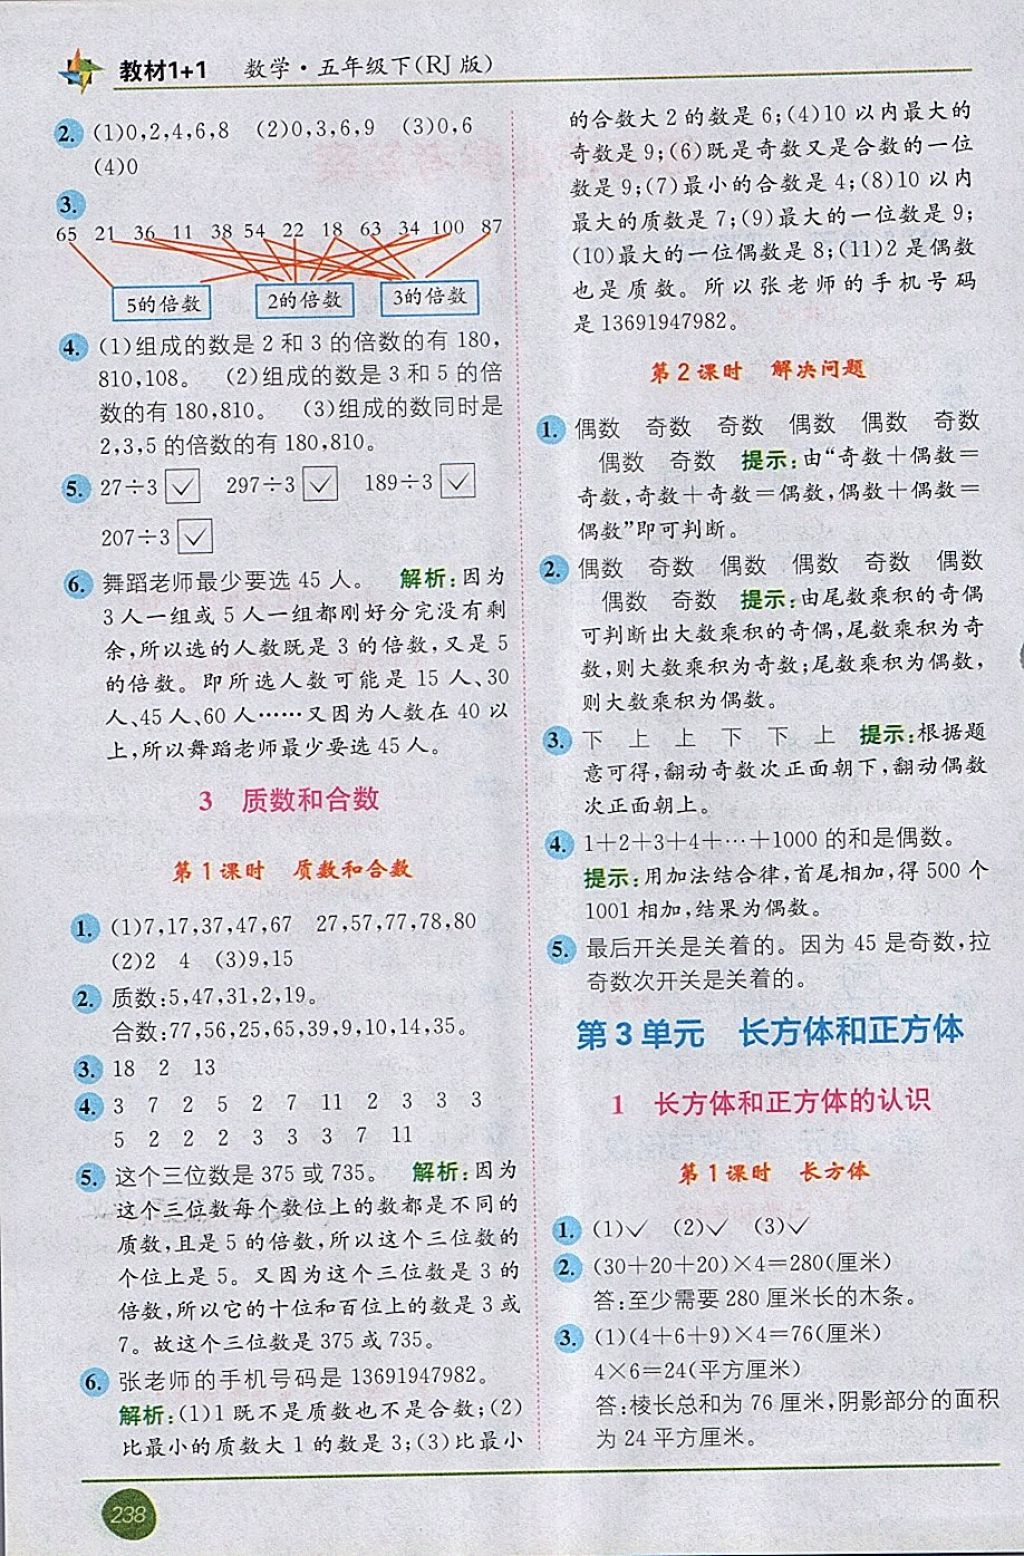 教材1+1 数学·五年级下(RJ版)
2. (1)0,2,4,6,8 (2)0,3,6,9 (3)0,6
(4)0
3.
65 21 36 11 38 54 22 18 63 34 100 87
5的倍数 2的倍数 3的倍数
4. (1)组成的数是2和3的倍数的有180,
810,108。 (2)组成的数是3和5的倍
数的有180,810。 (3)组成的数同时是
2,3,5的倍数的有180,810。
5. 27÷3 ✓ 297÷3 ✓ 189÷3 ✓
207÷3 ✓
6. 舞蹈老师最少要选45人。 解析:因为
3人一组或5人一组都刚好分完没有剩
余,所以选的人数既是3的倍数,又是5
的倍数。即所选人数可能是15人、30
人、45人、60人……又因为人数在40以
上,所以舞蹈老师最少要选45人。
3 质数和合数
第1课时 质数和合数
1. (1)7,17,37,47,67 27,57,77,78,80
(2)2 4 (3)9,15
2. 质数:5,47,31,2,19。
合数:77,56,25,65,39,9,10,14,35。
3. 18 2 13
4. 3 7 2 5 2 7 11 2 3 3 3
5 2 2 2 3 3 3 7 11
5. 这个三位数是375或735。 解析:因为
这个三位数每个数位上的数都是不同的
质数,且是5的倍数,所以这个三位数的
个位上是5。又因为这个三位数是3的
倍数,所以它的十位和百位上的数是3或
7。故这个三位数是375或735。
6. 张老师的手机号码是13691947982。
解析:(1)1既不是质数也不是合数;(2)
比最小的质数大1的数是3;(3)比最小
的合数大2的数是6;(4)10以内最大的
奇数是9;(6)既是奇数又是合数的一位
数是9;(7)最小的合数是4;(8)10以内
最大的质数是7;(9)最大的一位数是9;
(10)最大的一位偶数是8;(11)2是偶数
也是质数。所以张老师的手机号码
是13691947982。
第2课时 解决问题
1. 偶数 奇数 奇数 偶数 偶数 奇数
偶数 奇数 提示:由“奇数+偶数=
奇数,奇数+奇数=偶数,偶数+偶数=
偶数”即可判断。
2. 偶数 奇数 偶数 偶数 奇数 偶数
偶数 奇数 提示:由尾数乘积的奇偶
可判断出大数乘积的奇偶,尾数乘积为奇
数,则大数乘积为奇数;尾数乘积为偶数,
则大数乘积为偶数。
3. 下 上 上 下 下 上 提示:根据题
意可得,翻动奇数次正面朝下,翻动偶数
次正面朝上。
4. 1+2+3+4+…+1000的和是偶数。
提示:用加法结合律,首尾相加,得500个
1001相加,结果为偶数。
5. 最后开关是关着的。因为45是奇数,拉
奇数次开关是关着的。
第3单元 长方体和正方体
1 长方体和正方体的认识
第1课时 长方体
1. (1)✓ (2)✓ (3)✓
2. (30+20+20)×4=280(厘米)
答:至少需要280厘米长的木条。
3. (1)(4+6+9)×4=76(厘米)
4×6=24(平方厘米)
答:棱长总和为76厘米,阴影部分的面积
为24平方厘米。
238